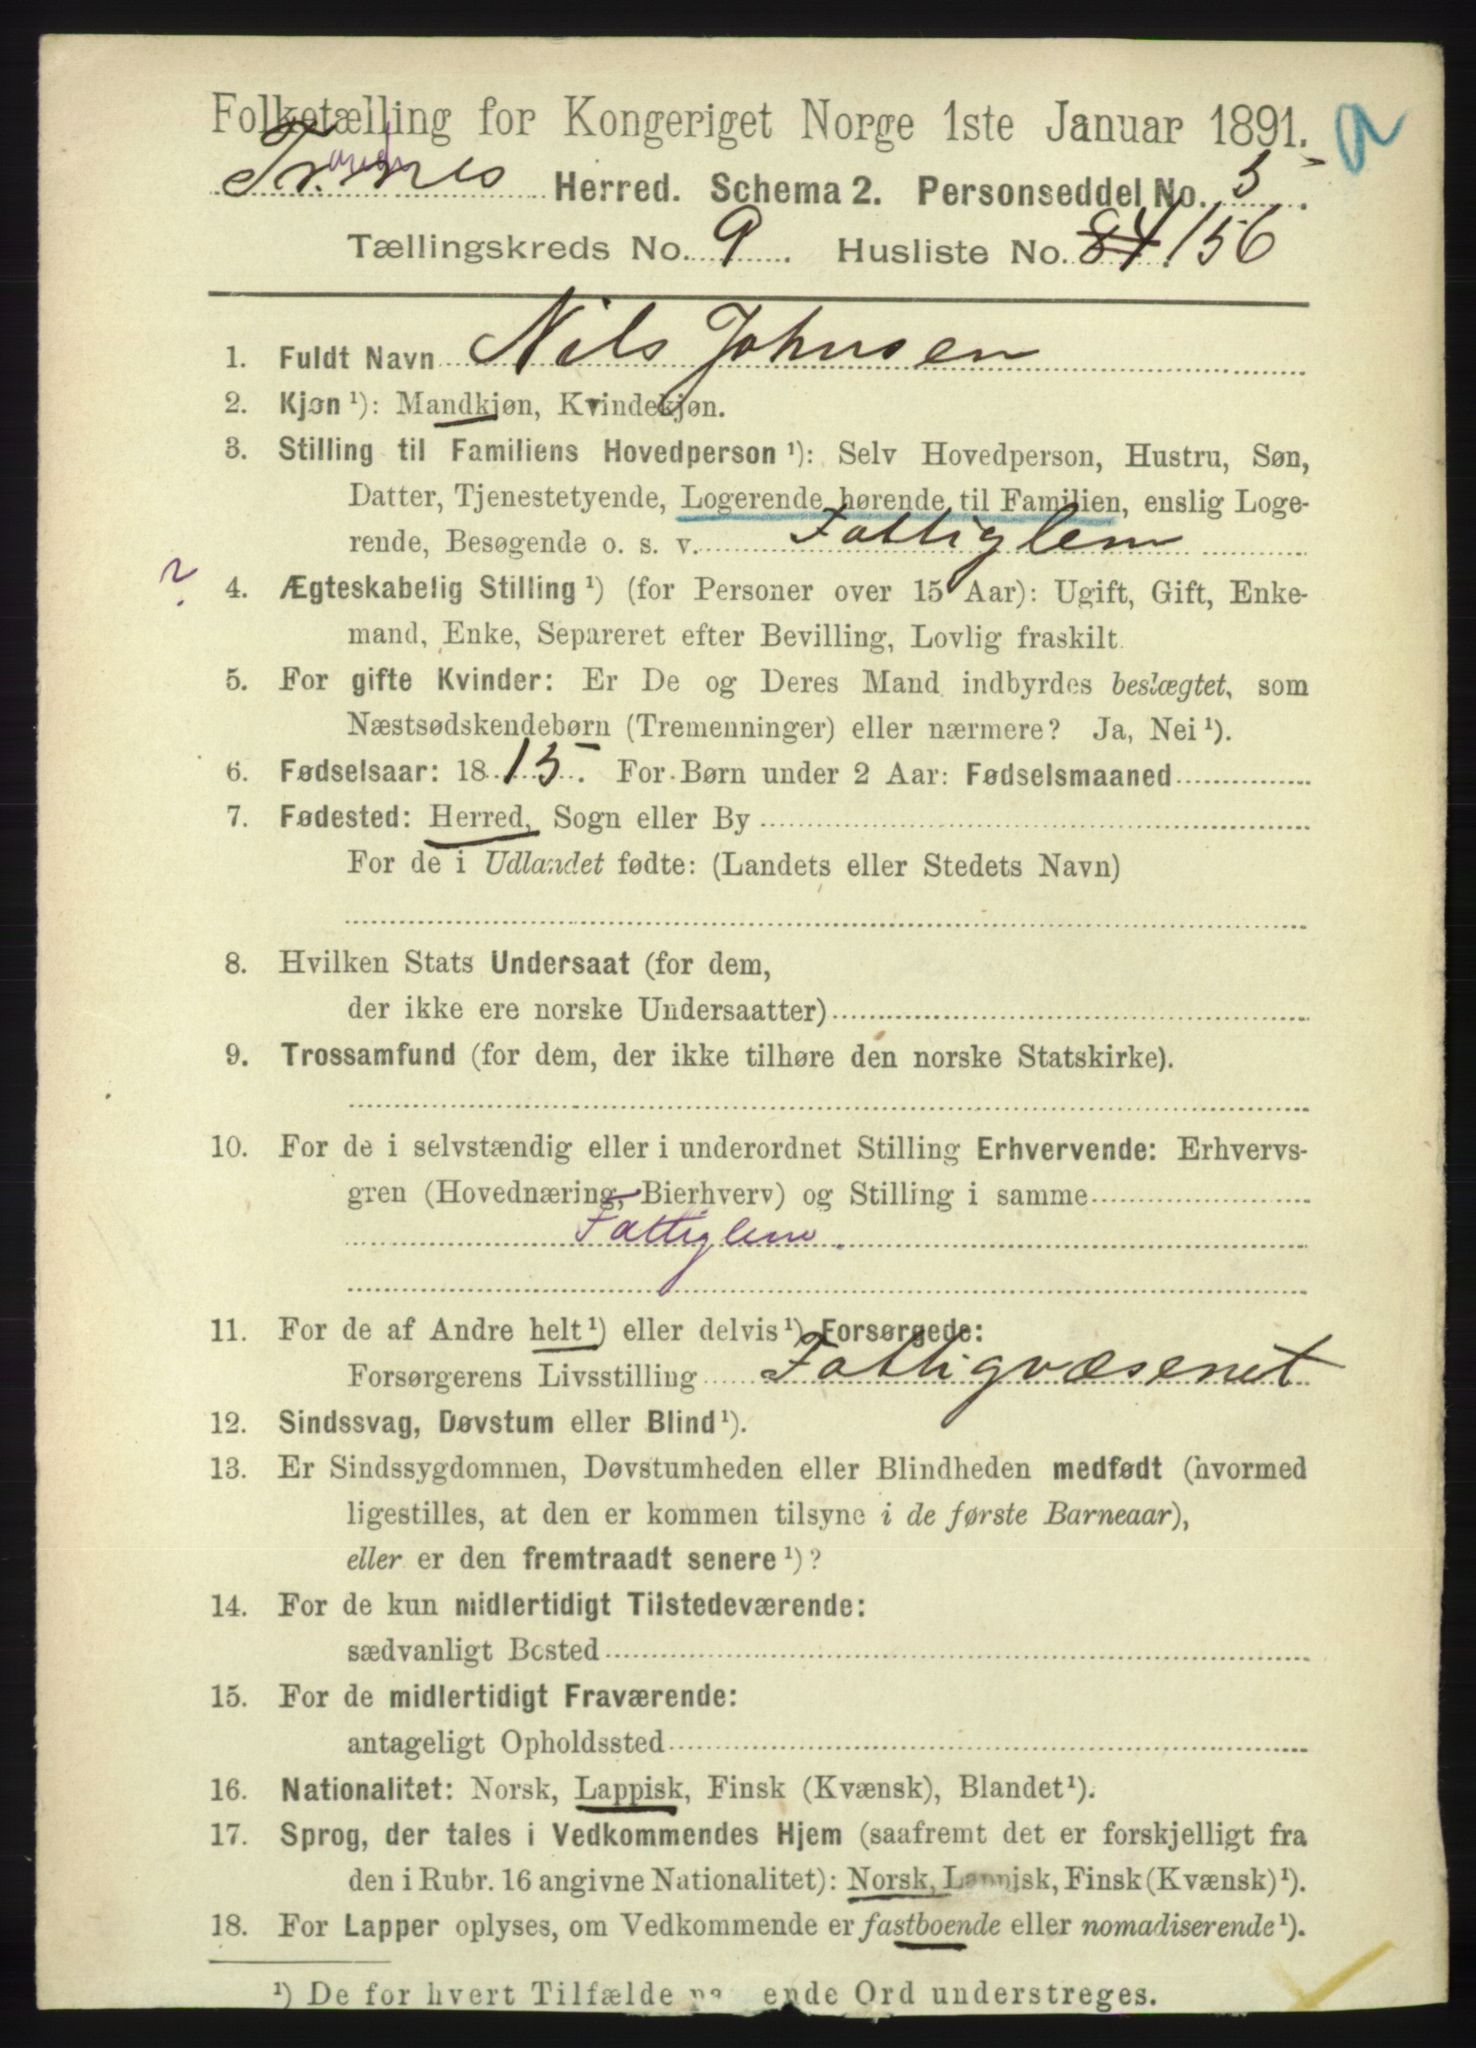 Folketælling for Kongeriget Norge 1ste Januar 1891.
Tranes Herred. Schema 2. Personseddel No. 5.
Tællingskreds No. 9. Husliste No. 84 156
1. Fuldt Navn Nils Johnsen
2. Kjøn ¹): Mandkjøn, Kvindekjøn.
3. Stilling til Familiens Hovedperson ¹): Selv Hovedperson, Hustru, Søn,
Datter, Tjenestetyende, Logerende hørende til Familien, enslig Loge-
rende, Besøgende o. s. v. Fattiglem
? 4. Ægteskabelig Stilling ¹) (for Personer over 15 Aar): Ugift, Gift, Enke-
mand, Enke, Separeret efter Bevilling, Lovlig fraskilt.
5. For gifte Kvinder: Er De og Deres Mand indbyrdes beslægtet, som
Næstsødskendebørn (Tremenninger) eller nærmere? Ja, Nei ¹).
6. Fødselsaar: 1815. For Børn under 2 Aar: Fødselsmaaned
7. Fødested: Herred, Sogn eller By
For de i Udlandet fødte: (Landets eller Stedets Navn)
8. Hvilken Stats Undersaat (for dem,
der ikke ere norske Undersaatter)
9. Trossamfund (for dem, der ikke tilhøre den norske Statskirke).
10. For de i selvstændig eller i underordnet Stilling Erhvervende: Erhvervs-
gren (Hovednæring, Bierhverv) og Stilling i samme
Fattiglem.
11. For de af Andre helt ¹) eller delvis ¹) Forsørgede:
Forsørgerens Livsstilling Fattigvæsenet
12. Sindssvag, Døvstum eller Blind ¹).
13. Er Sindssygdommen, Døvstumheden eller Blindheden medfødt (hvormed
ligestilles, at den er kommen tilsyne i de første Barneaar),
eller er den fremtraadt senere ¹)?
14. For de kun midlertidigt Tilstedeværende:
sædvanligt Bosted
15. For de midlertidigt Fraværende:
antageligt Opholdssted
16. Nationalitet: Norsk, Lappisk, Finsk (Kvænsk), Blandet ¹).
17. Sprog, der tales i Vedkommendes Hjem (saafremt det er forskjelligt fra
den i Rubr. 16 angivne Nationalitet): Norsk, Lappisk, Finsk (Kvænsk) ¹).
18. For Lapper oplyses, om Vedkommende er fastboende eller nomadiserende ¹).
¹) De for hvert Tilfælde pa ende Ord understreges.